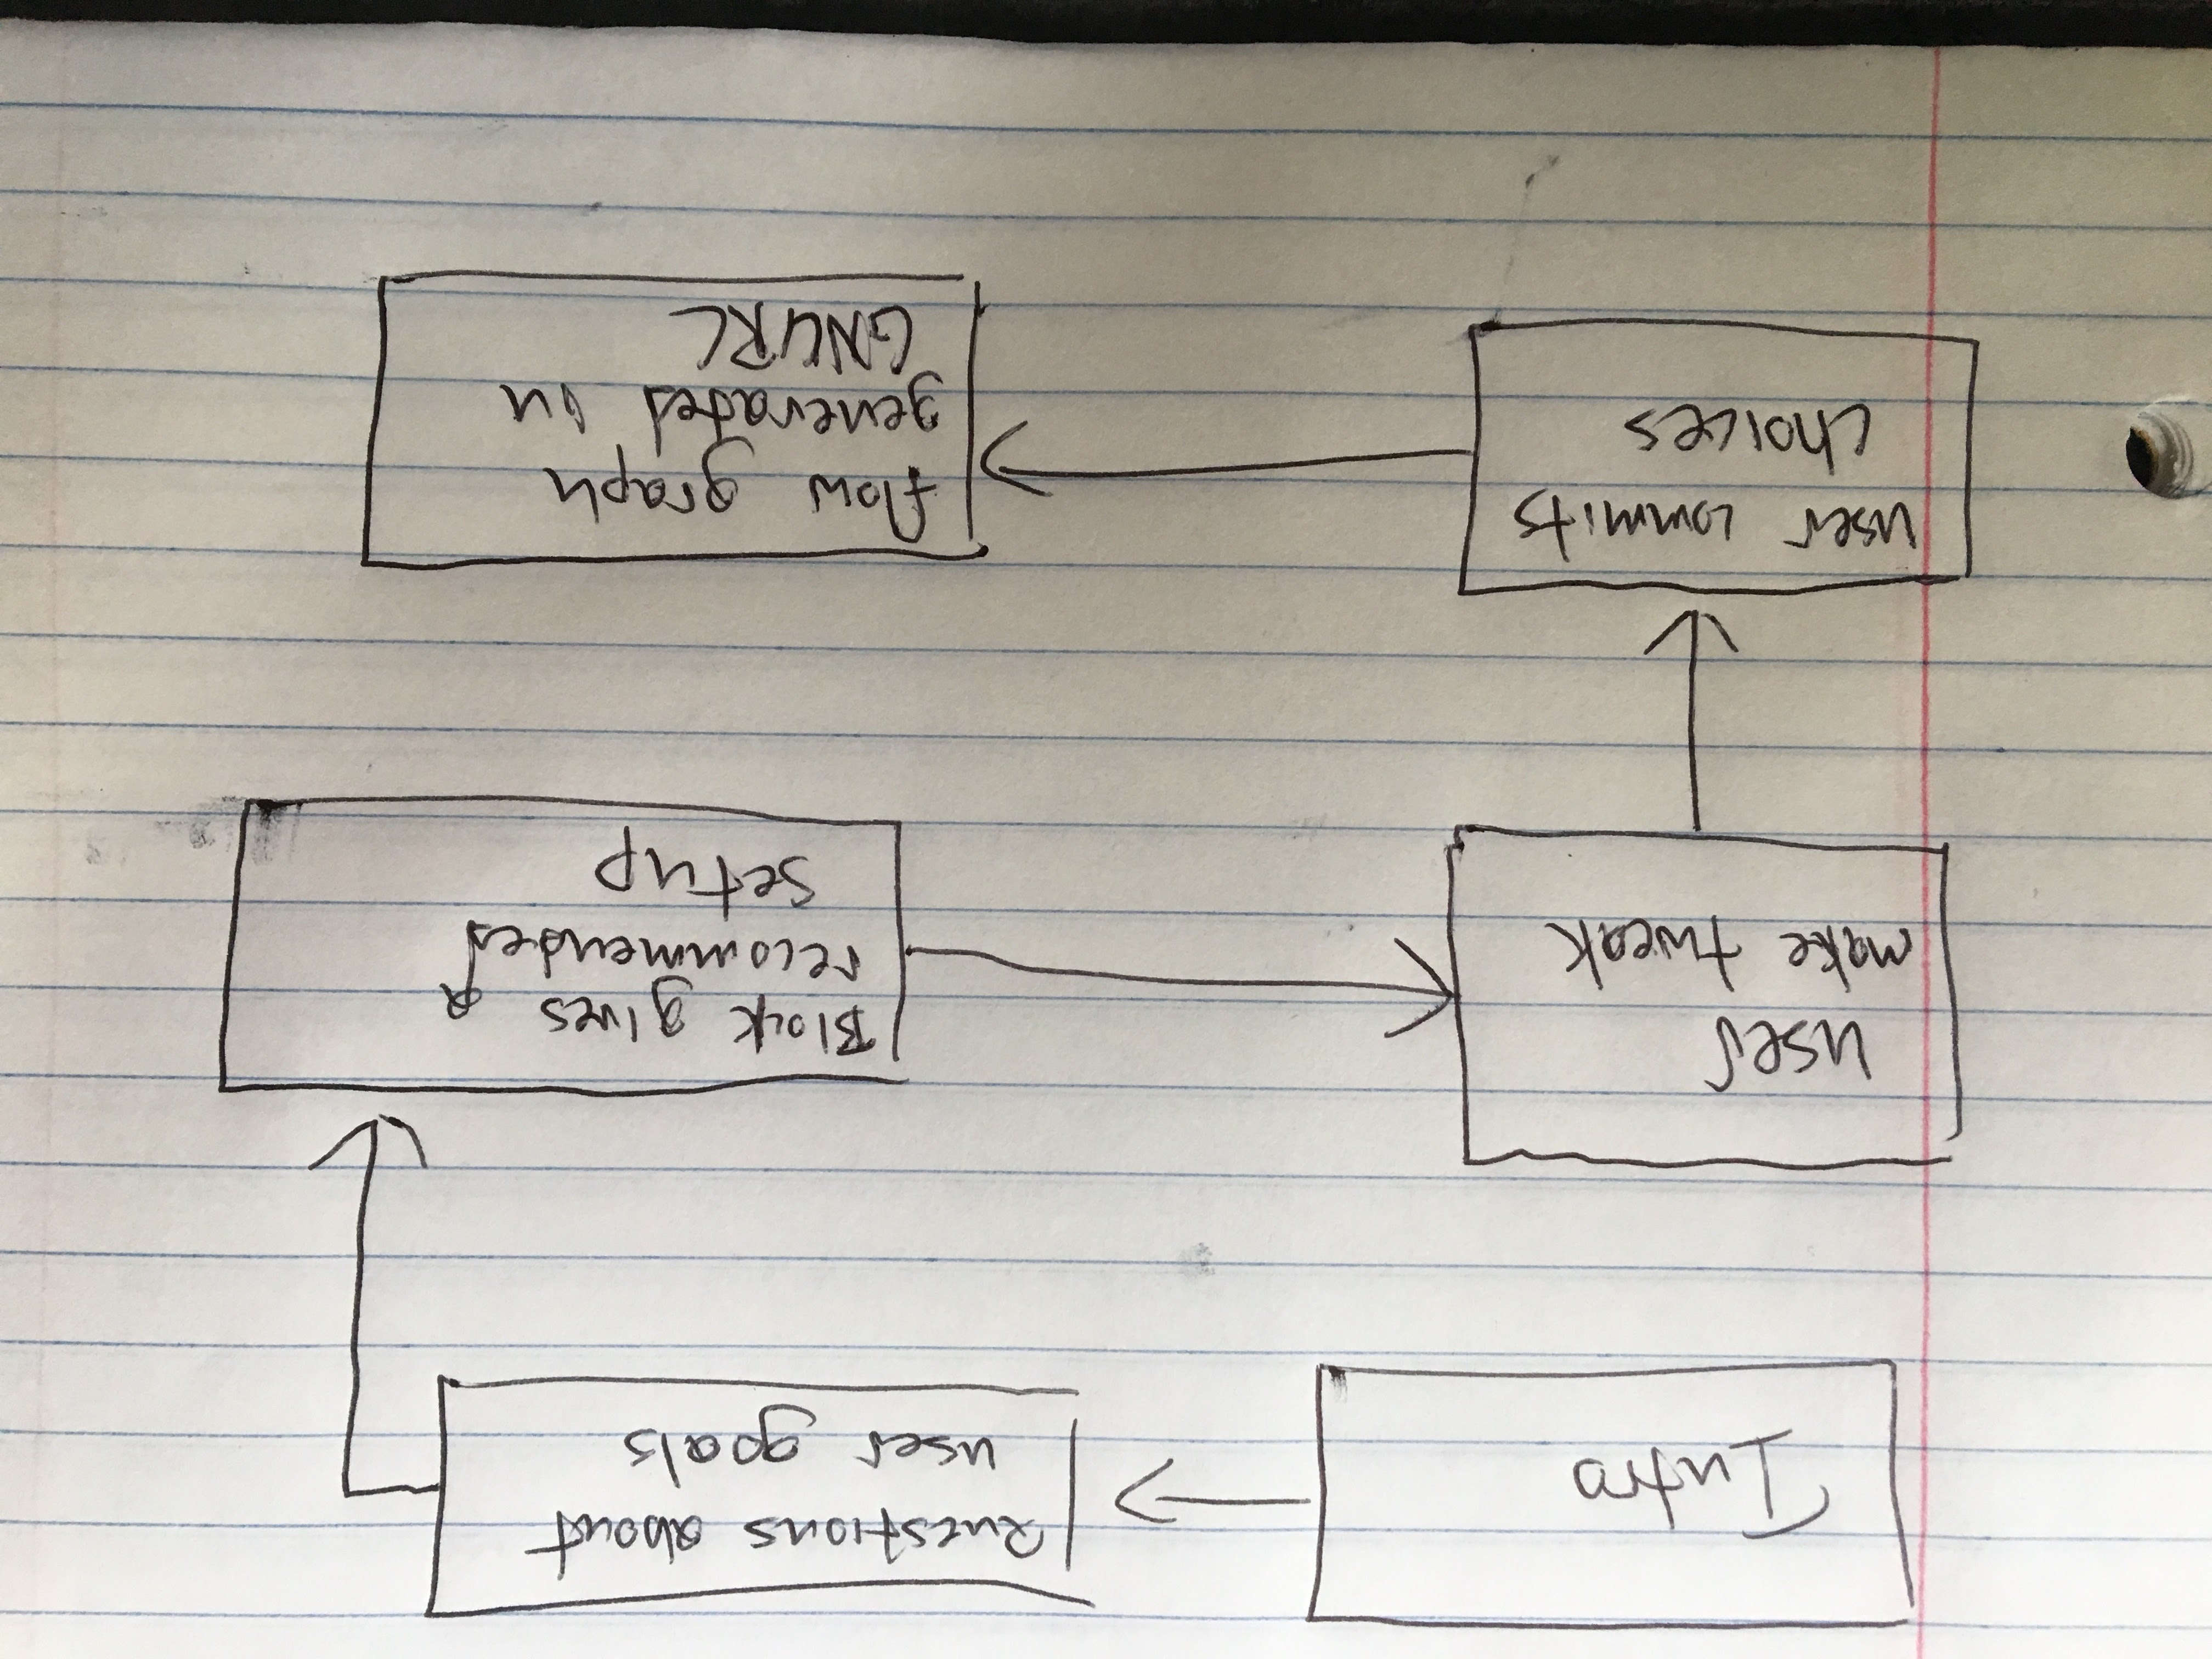 Intro
Questions about
user goals
Block gives a
recommended
setup
user
make tweak
user commits
choices
flow graph
generated in
GNURC